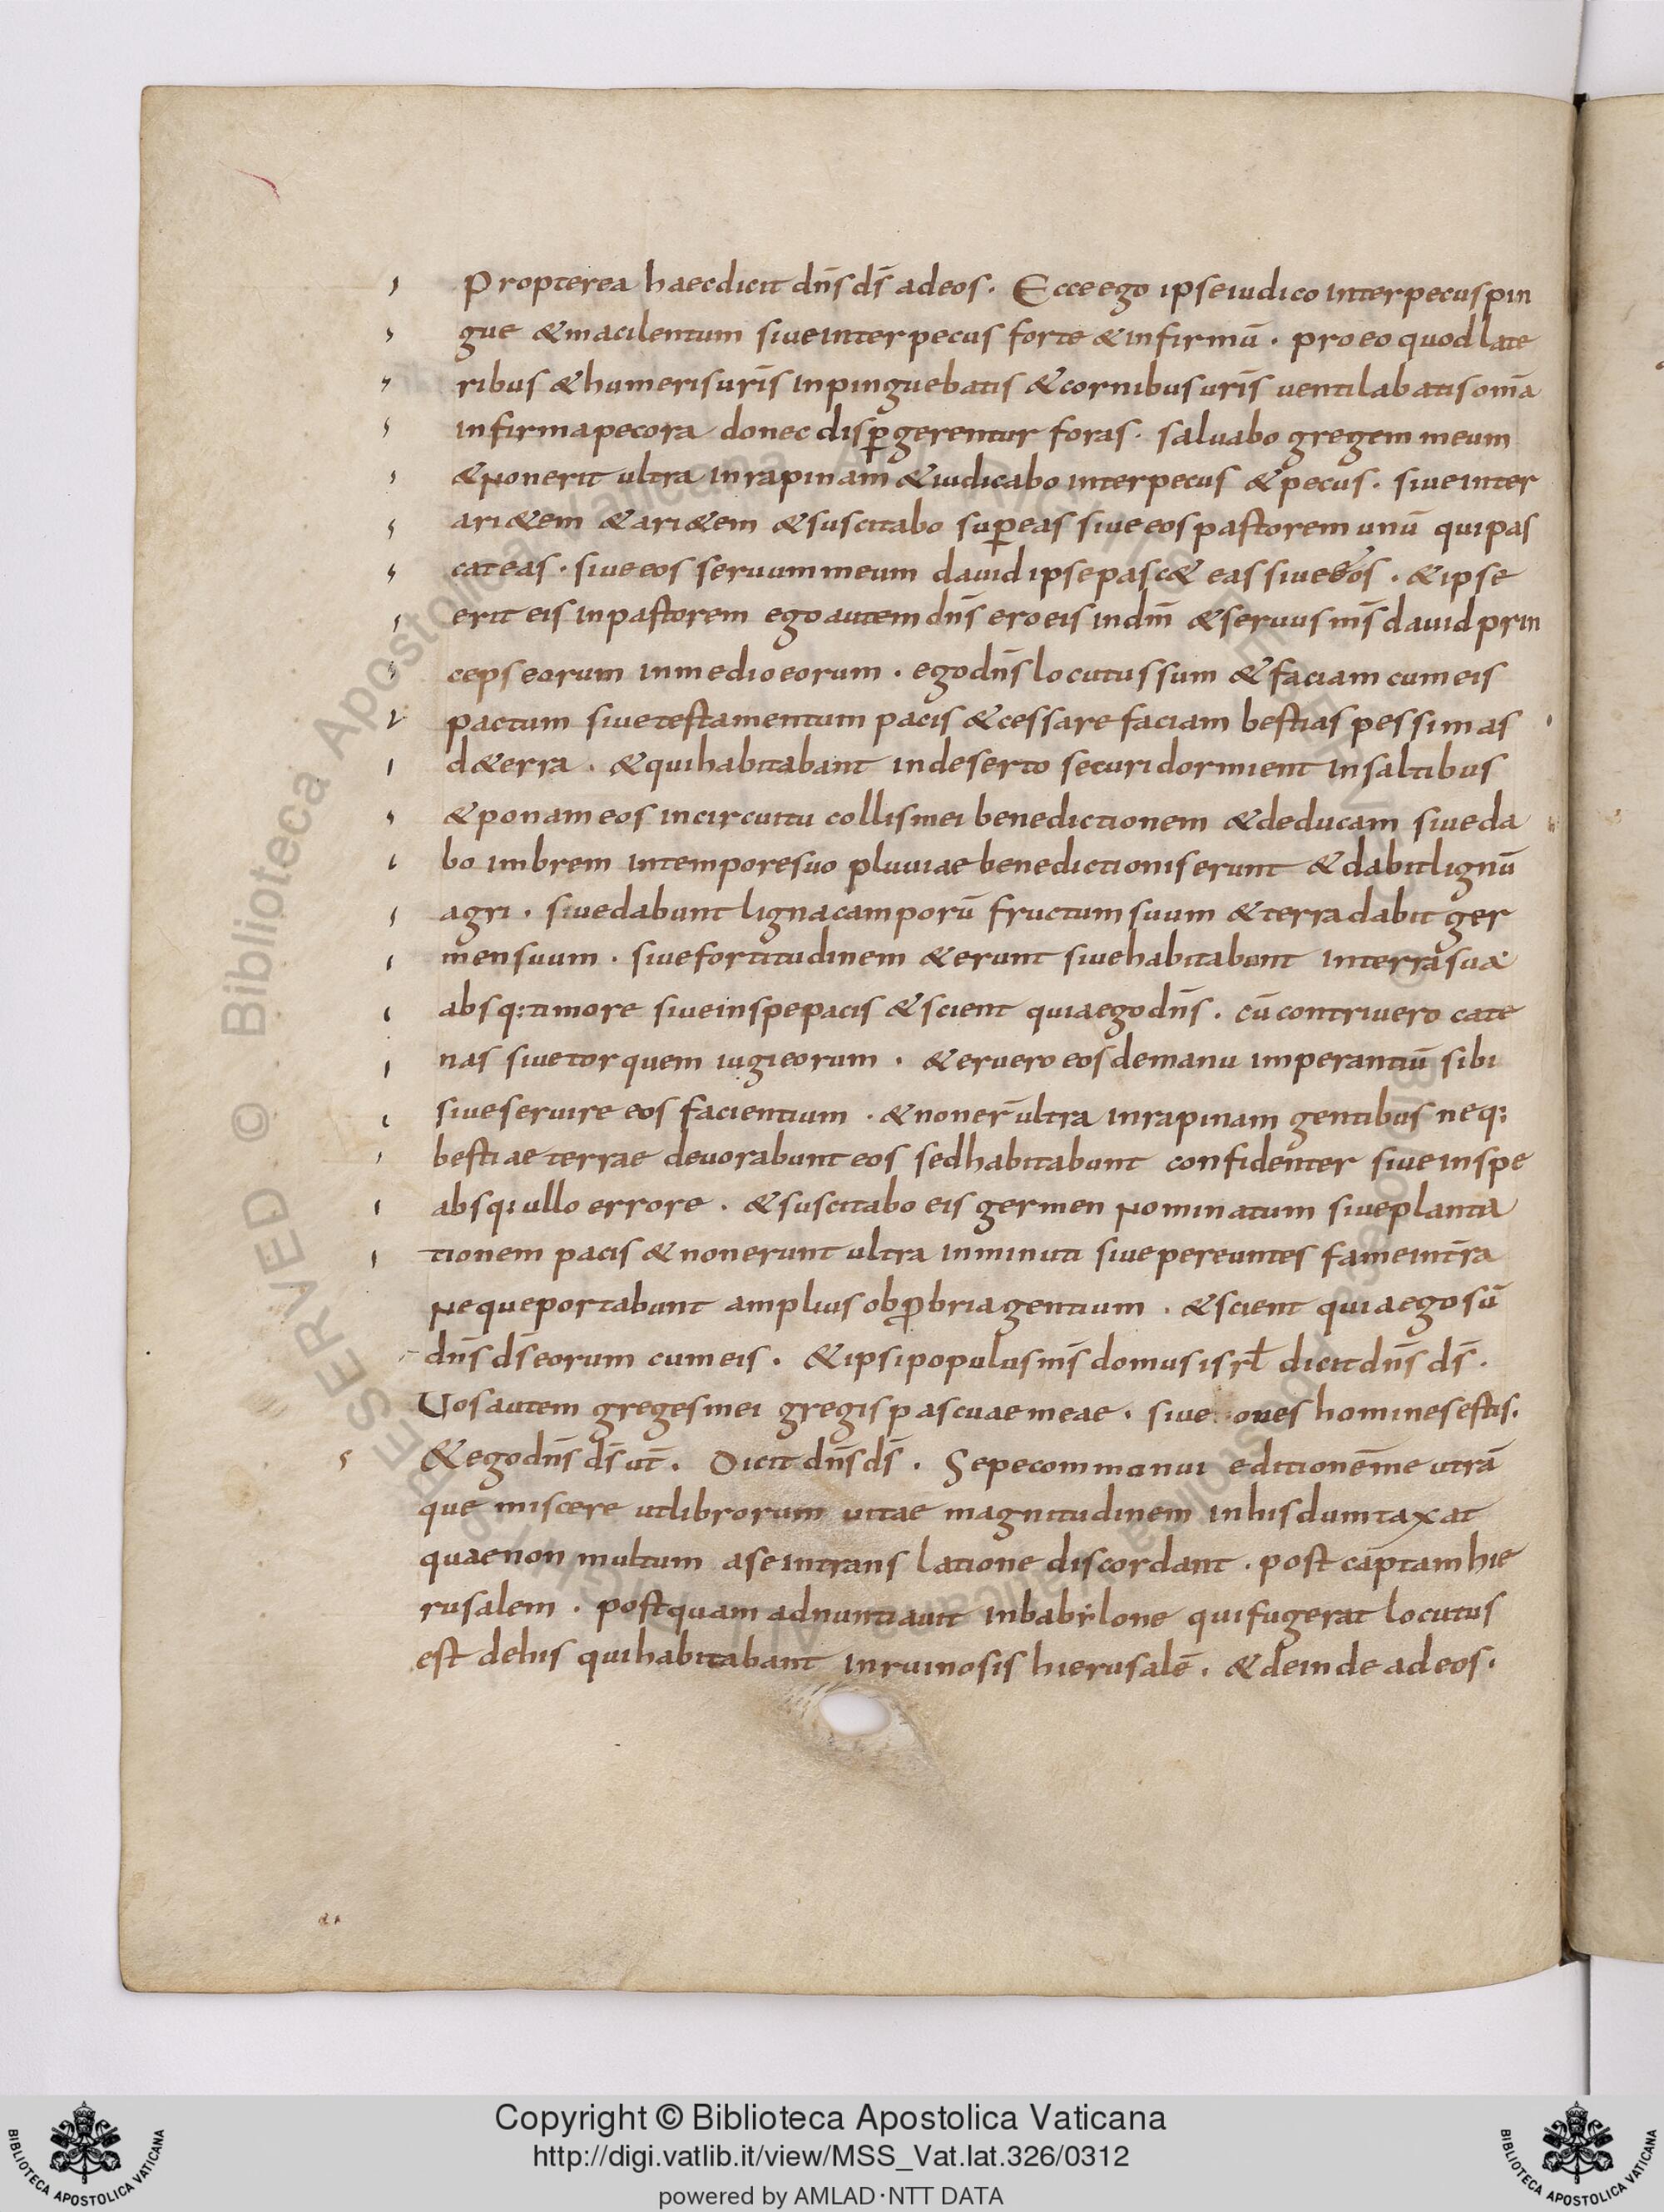 Propterea haecdicit dn̄s ds̄ adeos. Ecceego ipseiudico interpecus pin
gue &macilentum siueinterpecus forte &infirmū. proeo quod late
ribus &humeris ur̄is inpinguebatis &cornibus ur̄is uentilabatis om̄a
infirmapecora donec disp̱gerentur foras. saluabo gregem meum
&nonerit ultra inrapinam &iudicabo interpecus &pecus. siueinter
ari&em &ari&em &suscitabo sup̱eas siueeos pastorem unū qui pas
cateas. siueeos seruum meum dauid ipse pasc& eas siue eos. &ipse
erit eis inpastorem ego autem dn̄s eroeis indm̄ &seruus ms̄ dauid prin
ceps eorum inmedio eorum. ego dn̄s locutus sum &faciam cumeis
pactum siuetestamentum pacis &cessare faciam bestias pessimas
d&erra. &quihabitabant indeserto securi dormient insaltibus
&ponam eos incircuitu collis mei benedictionem &deducam siueda
bo imbrem intemporesuo pluuiae benedictionis erunt &dabit lignū
agri. siuedabunt lignacamporū fructum suum &terra dabit ger
mensuum. siuefortitudinem &erunt siuehabitabunt interra sua
absq; timore siueinspepacis &scient quiaego dn̄s. cū contriuero cate
nas siuetorquem iugieorum. &eruero eos demanu imperantiū sibi
siueseruire eos facientium. &noner̄ ultra inrapinam gentibus neq;
bestiae terrae deuorabunt eos sedhabitabunt confidenter siueinspe
absq; ullo errore. &suscitabo eis germen nominatum siueplanta
tionem pacis &nonerunt ultra inminuti siuepereuntes fameint̄ra
nequeportabunt amplius obp̱bria gentium. &scient quiaego sū
dn̄s ds̄ eorum cumeis. &ipsi populus ms̄ domus isrł dicit dn̄s ds̄.
Uos autem greges mei gregis pascuae meae. siue oues homines estis.
&ego dn̄s ds̄ ur̄. Dicit dn̄s ds̄. Sepe commonui editionēme utrā
que miscere utlibrorum uitae magnitudinem inhis dumtaxat
quaenon multum aseintrans latione discordant. post captam hie
rusalem. postquam adnuntiauit inbabylone qui fugerat locutus
est dehis qui habitabant inruinosis hierusalē. &deinde adeos.
Copyright © Biblioteca Apostolica Vaticana
http://digi.vatlib.it/view/MSS_Vat.lat.326/0312
powered by AMLAD·NTT DATA
BIBLIOTECA APOSTOLICA VATICANA
BIBLIOTECA APOSTOLICA VATICANA